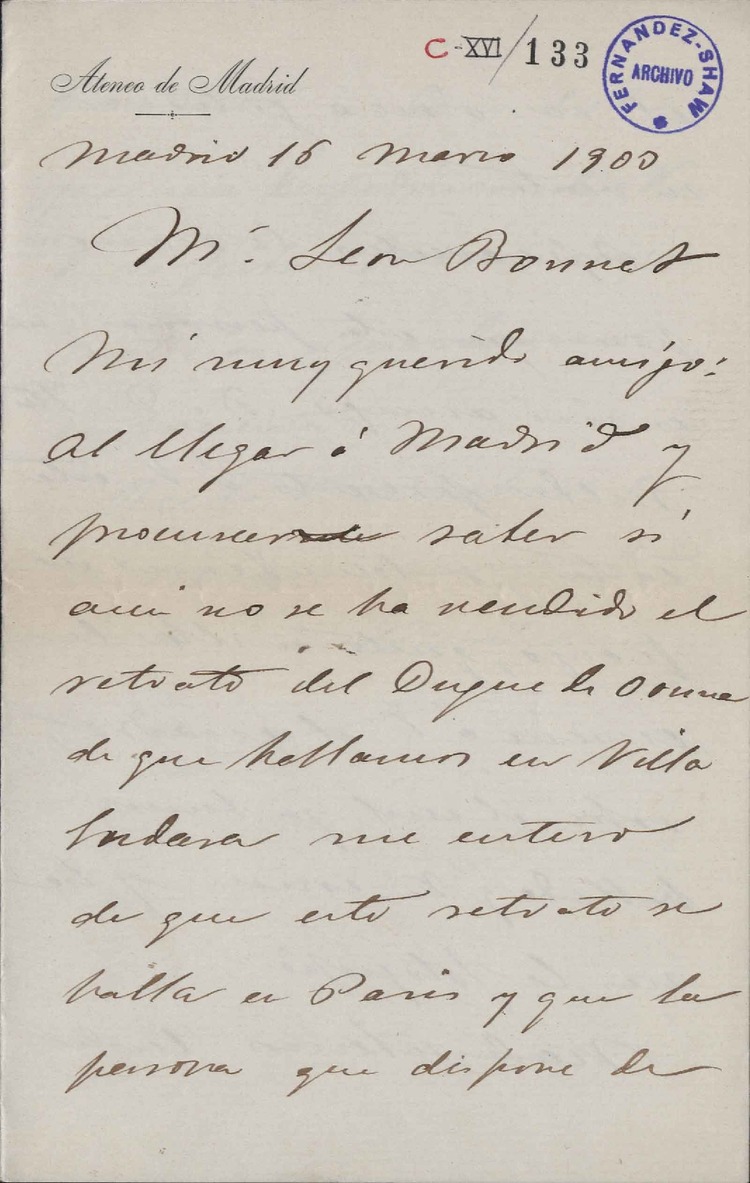 Ateneo de Madrid
C-XVI/133
FERNANDEZ-SHAW
ARCHIVO
Madrid 16 Marzo 1900
Mr. Leon Bonnat
Mi muy querido amigo:
Al llegar á Madrid y
procurar saber si
aun no se ha vendido el
retrato del Duque de Osuna
de que hablamos en Villa
me entero
de que este retrato se
halla en Paris y que la
persona que dispone de